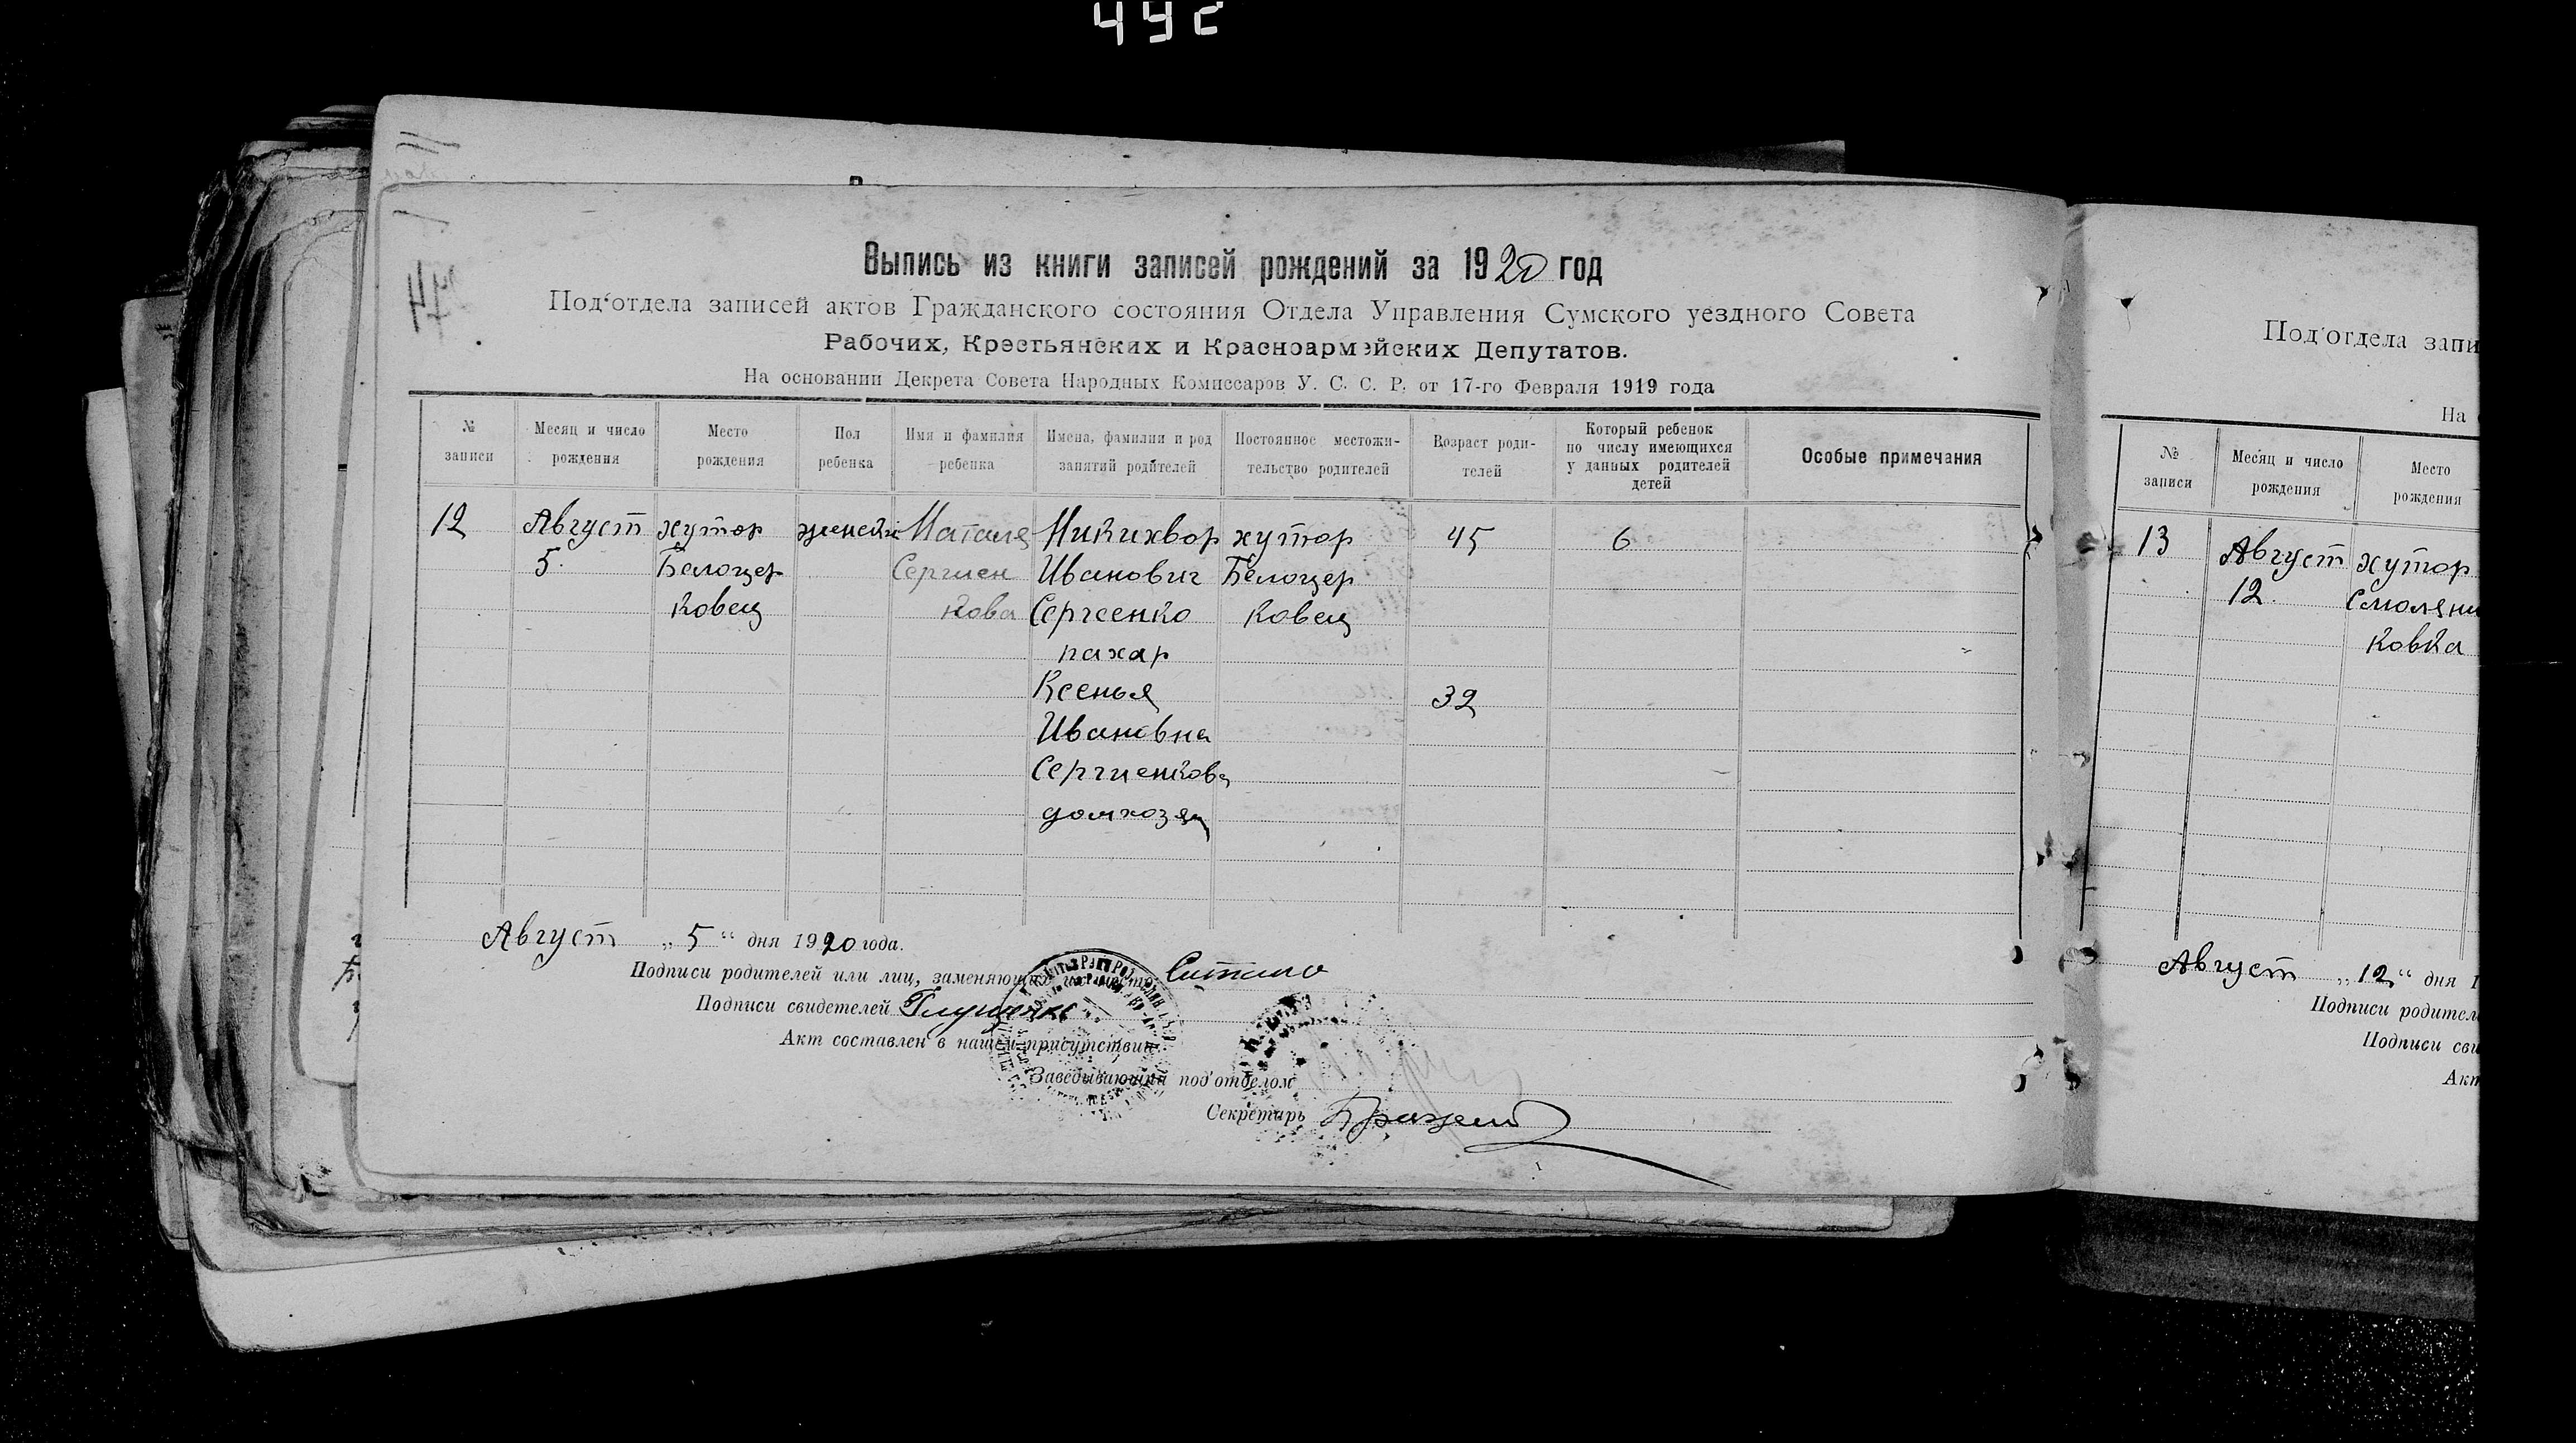 442
Выпись из книги записей рождений за 1920 год
Под‘отдела записей актов Гражданского состояния Отдела Управления Сумского уездного Совета
Рабочих, Крестьянских и Красноармейских Депутатов.
На основании Декрета Совета Народных Комиссаров У. С. С. Р. от 17-го Февраля 1919 года
№ записи
Месяц и число рождения
Место рождения
Пол ребенка
Имя и фамилия ребенка
Имена, фамилии и род занятий родителей
Постоянное местожительство родителей
Возраст родителей
Который ребенок по числу имеющихся у данных родителей детей
Особые примечания
12
Август
5.
хутор
Белоцер
ковец
женск
Наталя
Сергиен
кова
Никихвор
Иванович
Сергеенко
пахар
Ксенья
Ивановна
Сергиенкова
домхозяй
хутор
Белоцер
ковец
45
32
6
Август „5“ дня 1920 года.
Подписи родителей или лиц, заменяющих их место Ситило
Подписи свидетелей Глущенко
Акт составлен в нашем присутствии
Заведывающий под‘отделом
Секретарь
Под‘отдела запи
На
№ записи
Месяц и число рождения
Место рождения
13
Август
12.
хутор
Смоляни
ковка
Август „12“ дня 1
Подписи родител
Подписи сви
Акт